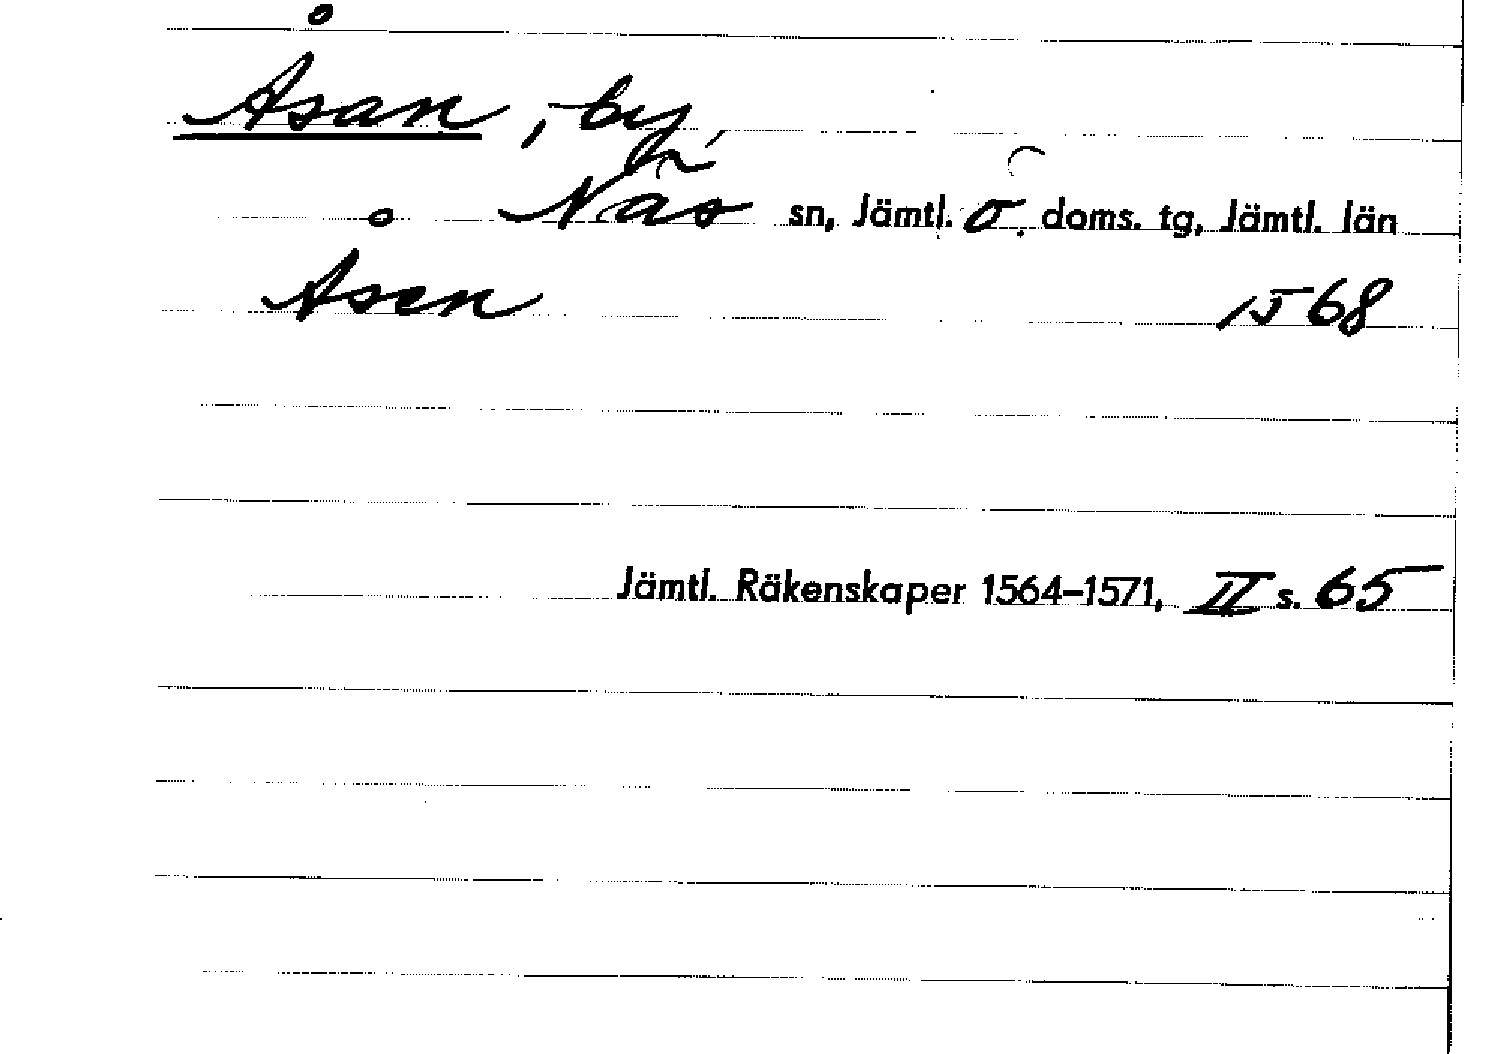 Åsan, by
Näs sn, Jämtl. ö. doms. tg, Jämtl. län
Åsen 1568
Jämtl. Räkenskaper 1564–1571, II s. 65